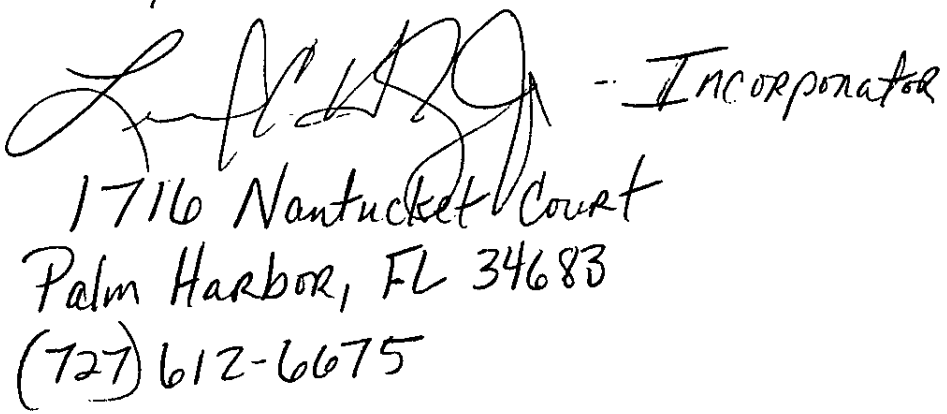 - Incorporator
1716 Nantucket Court
Palm Harbor, FL 34683
(727) 612-6675